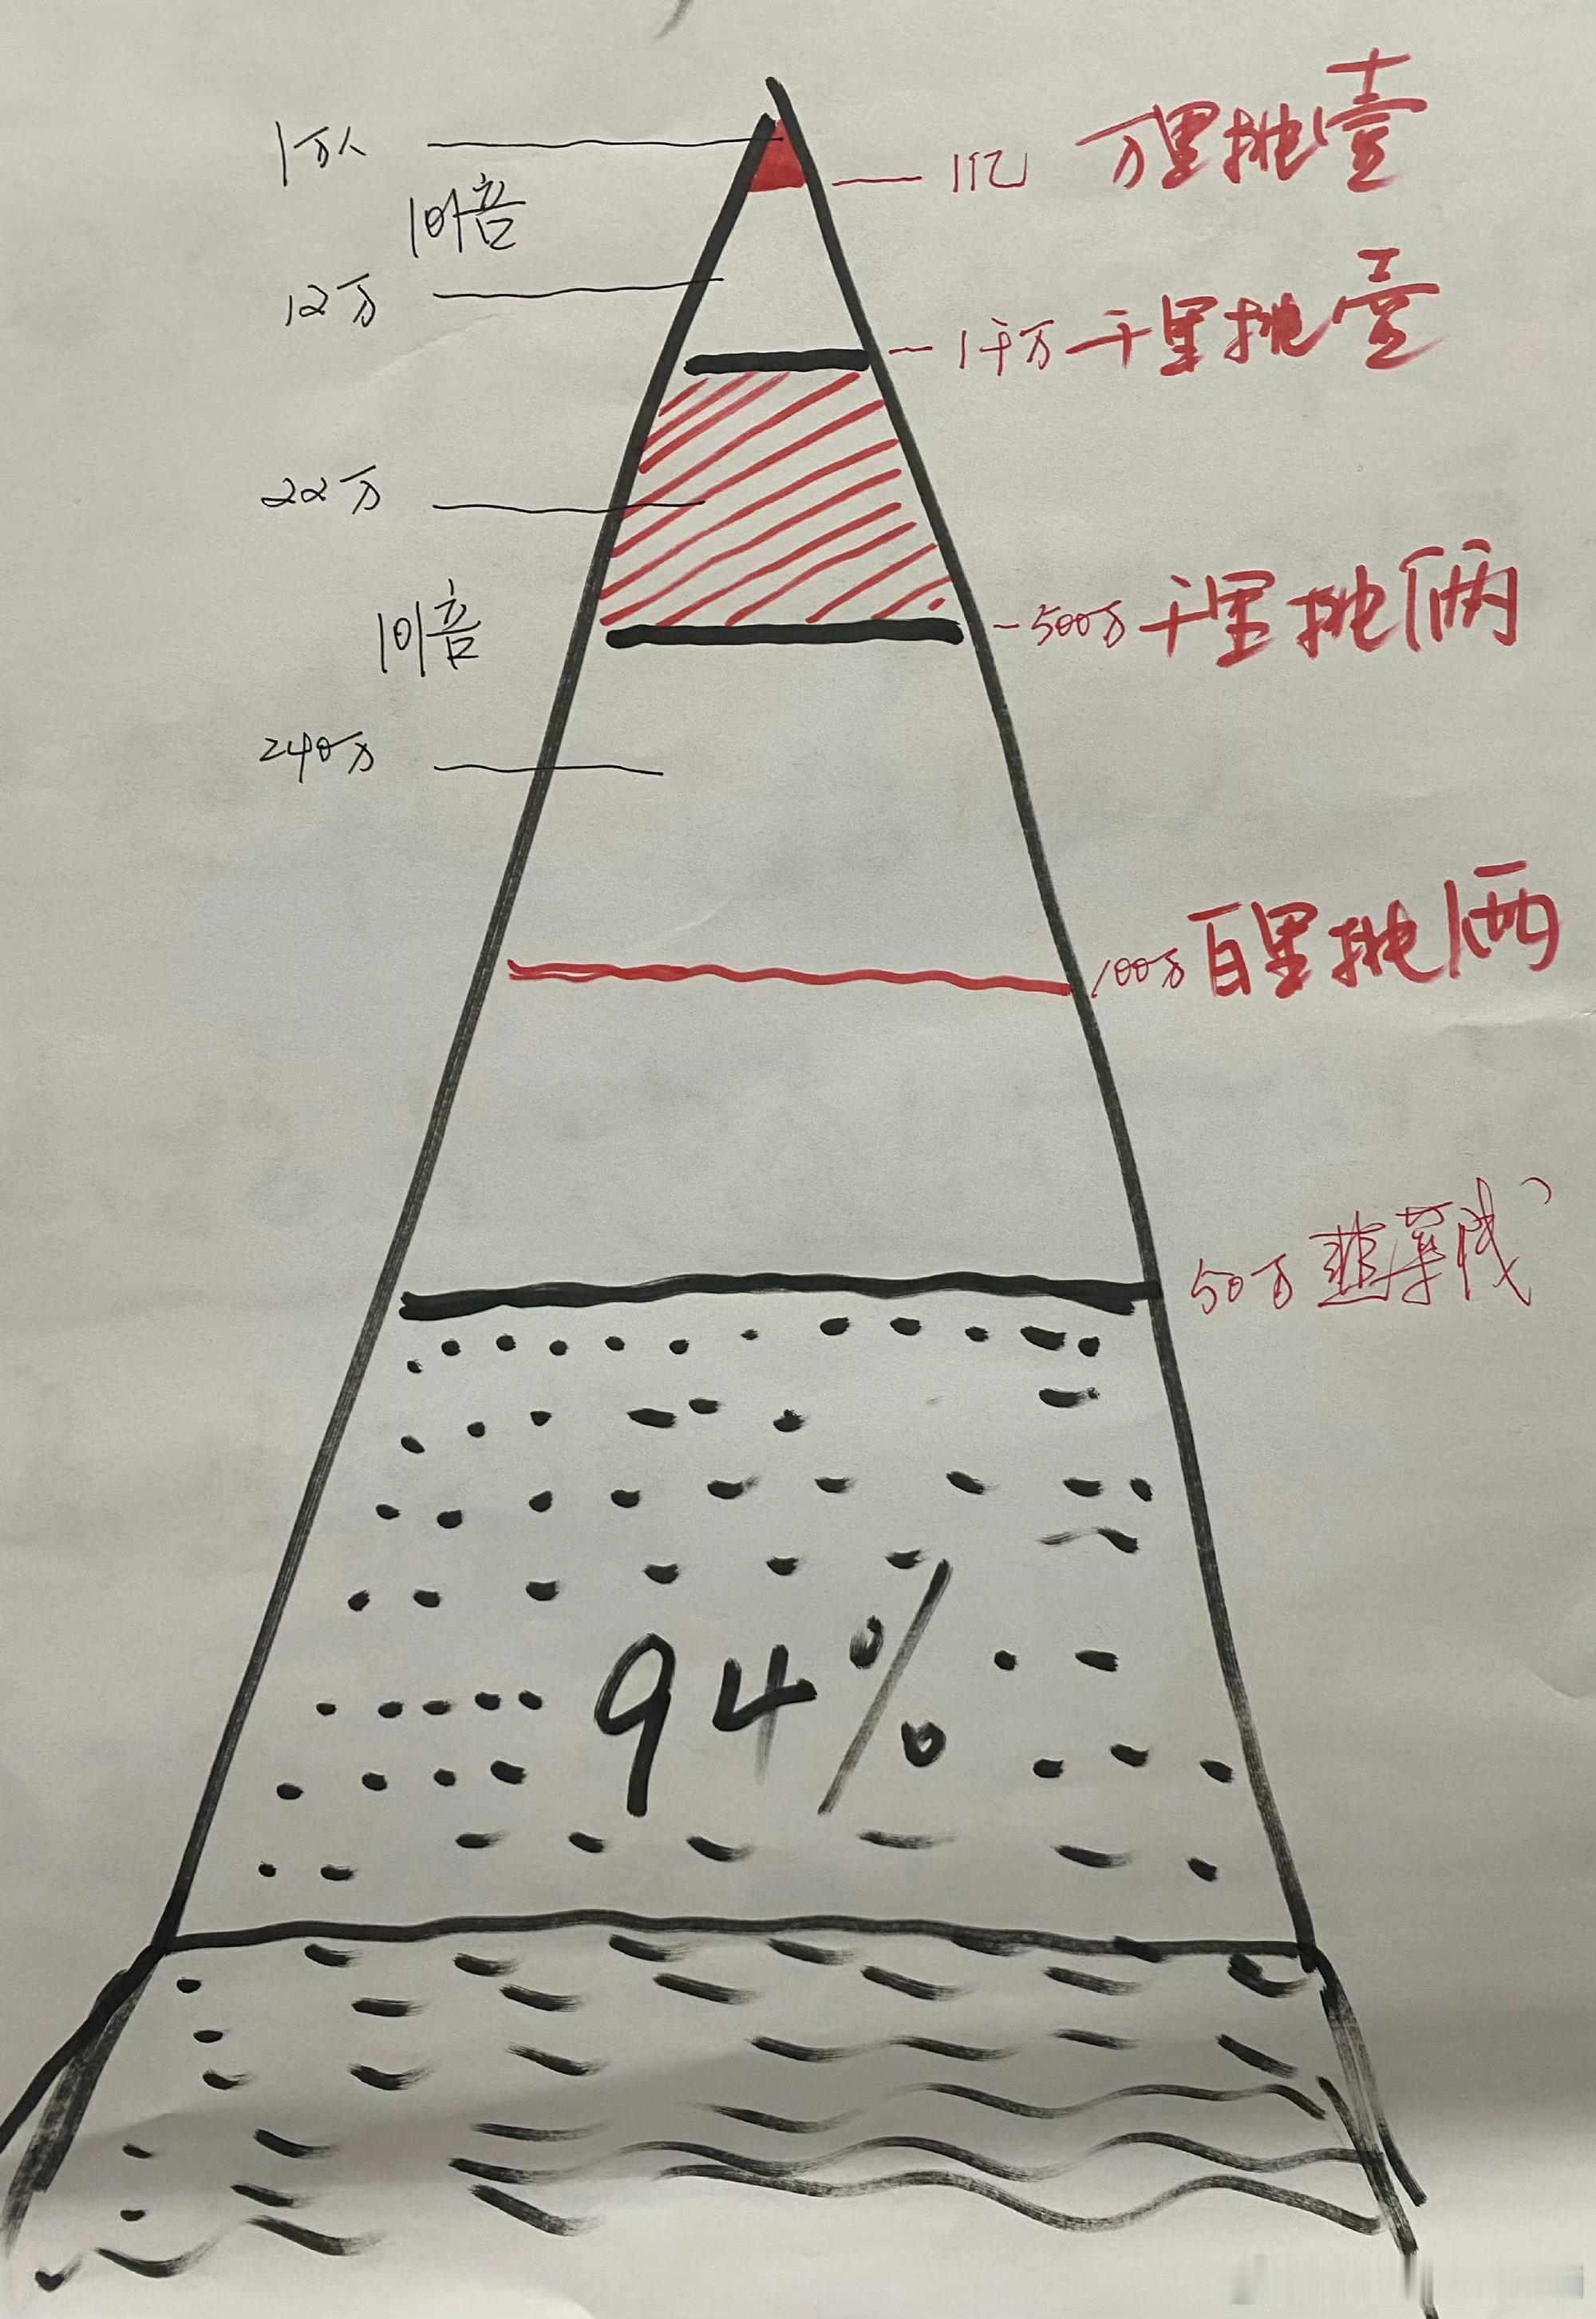 1万人
1亿 万里挑壹
10倍
12万
1千万 千里挑壹
22万
500万 千里挑俩
10倍
240万
100万 百里挑俩
50万 韭菜线
94%